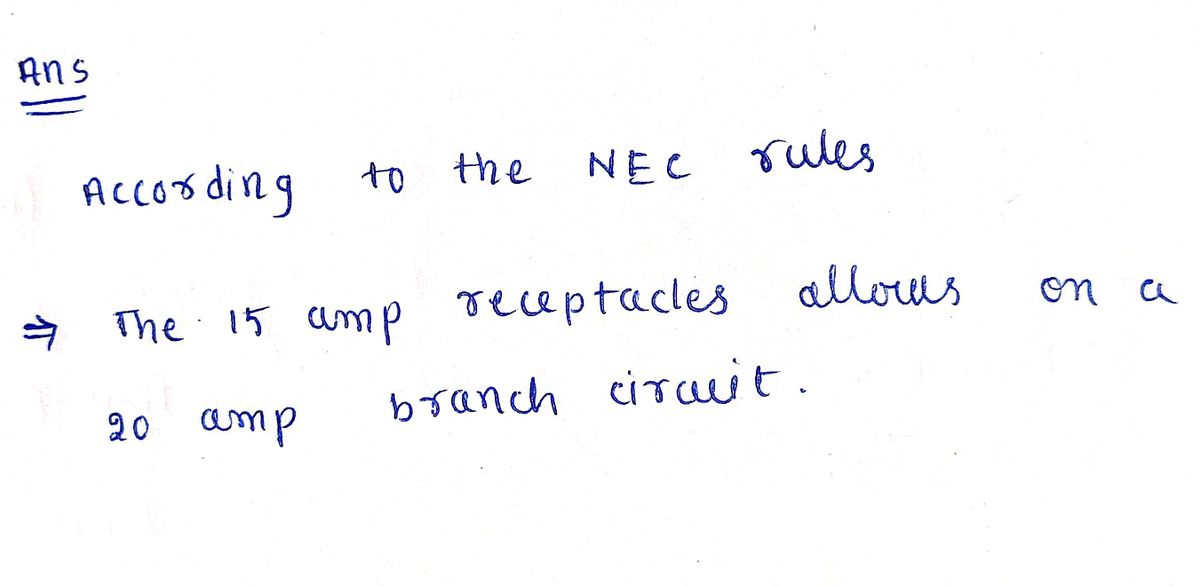 Ans
According to the NEC rules
⇒ The 15 amp receptacles allows on a
20 amp branch circuit.